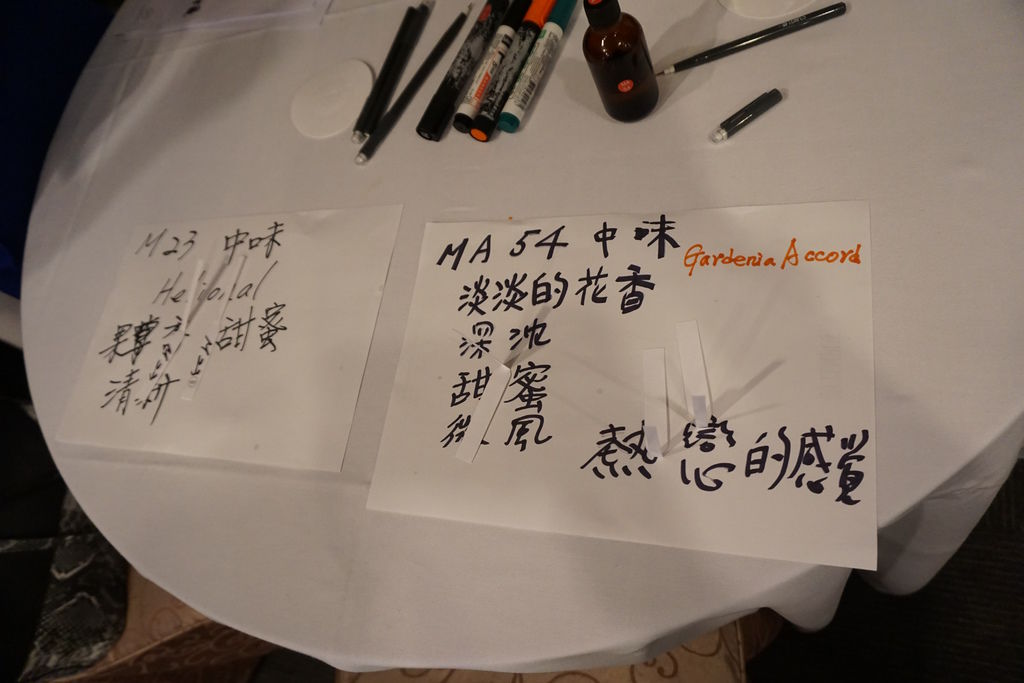 M23 中味
Helional
甜蜜
清
MA 54 中味
Gardenia Accord
淡淡的花香
深沈
甜蜜
微風
熱戀的感覺